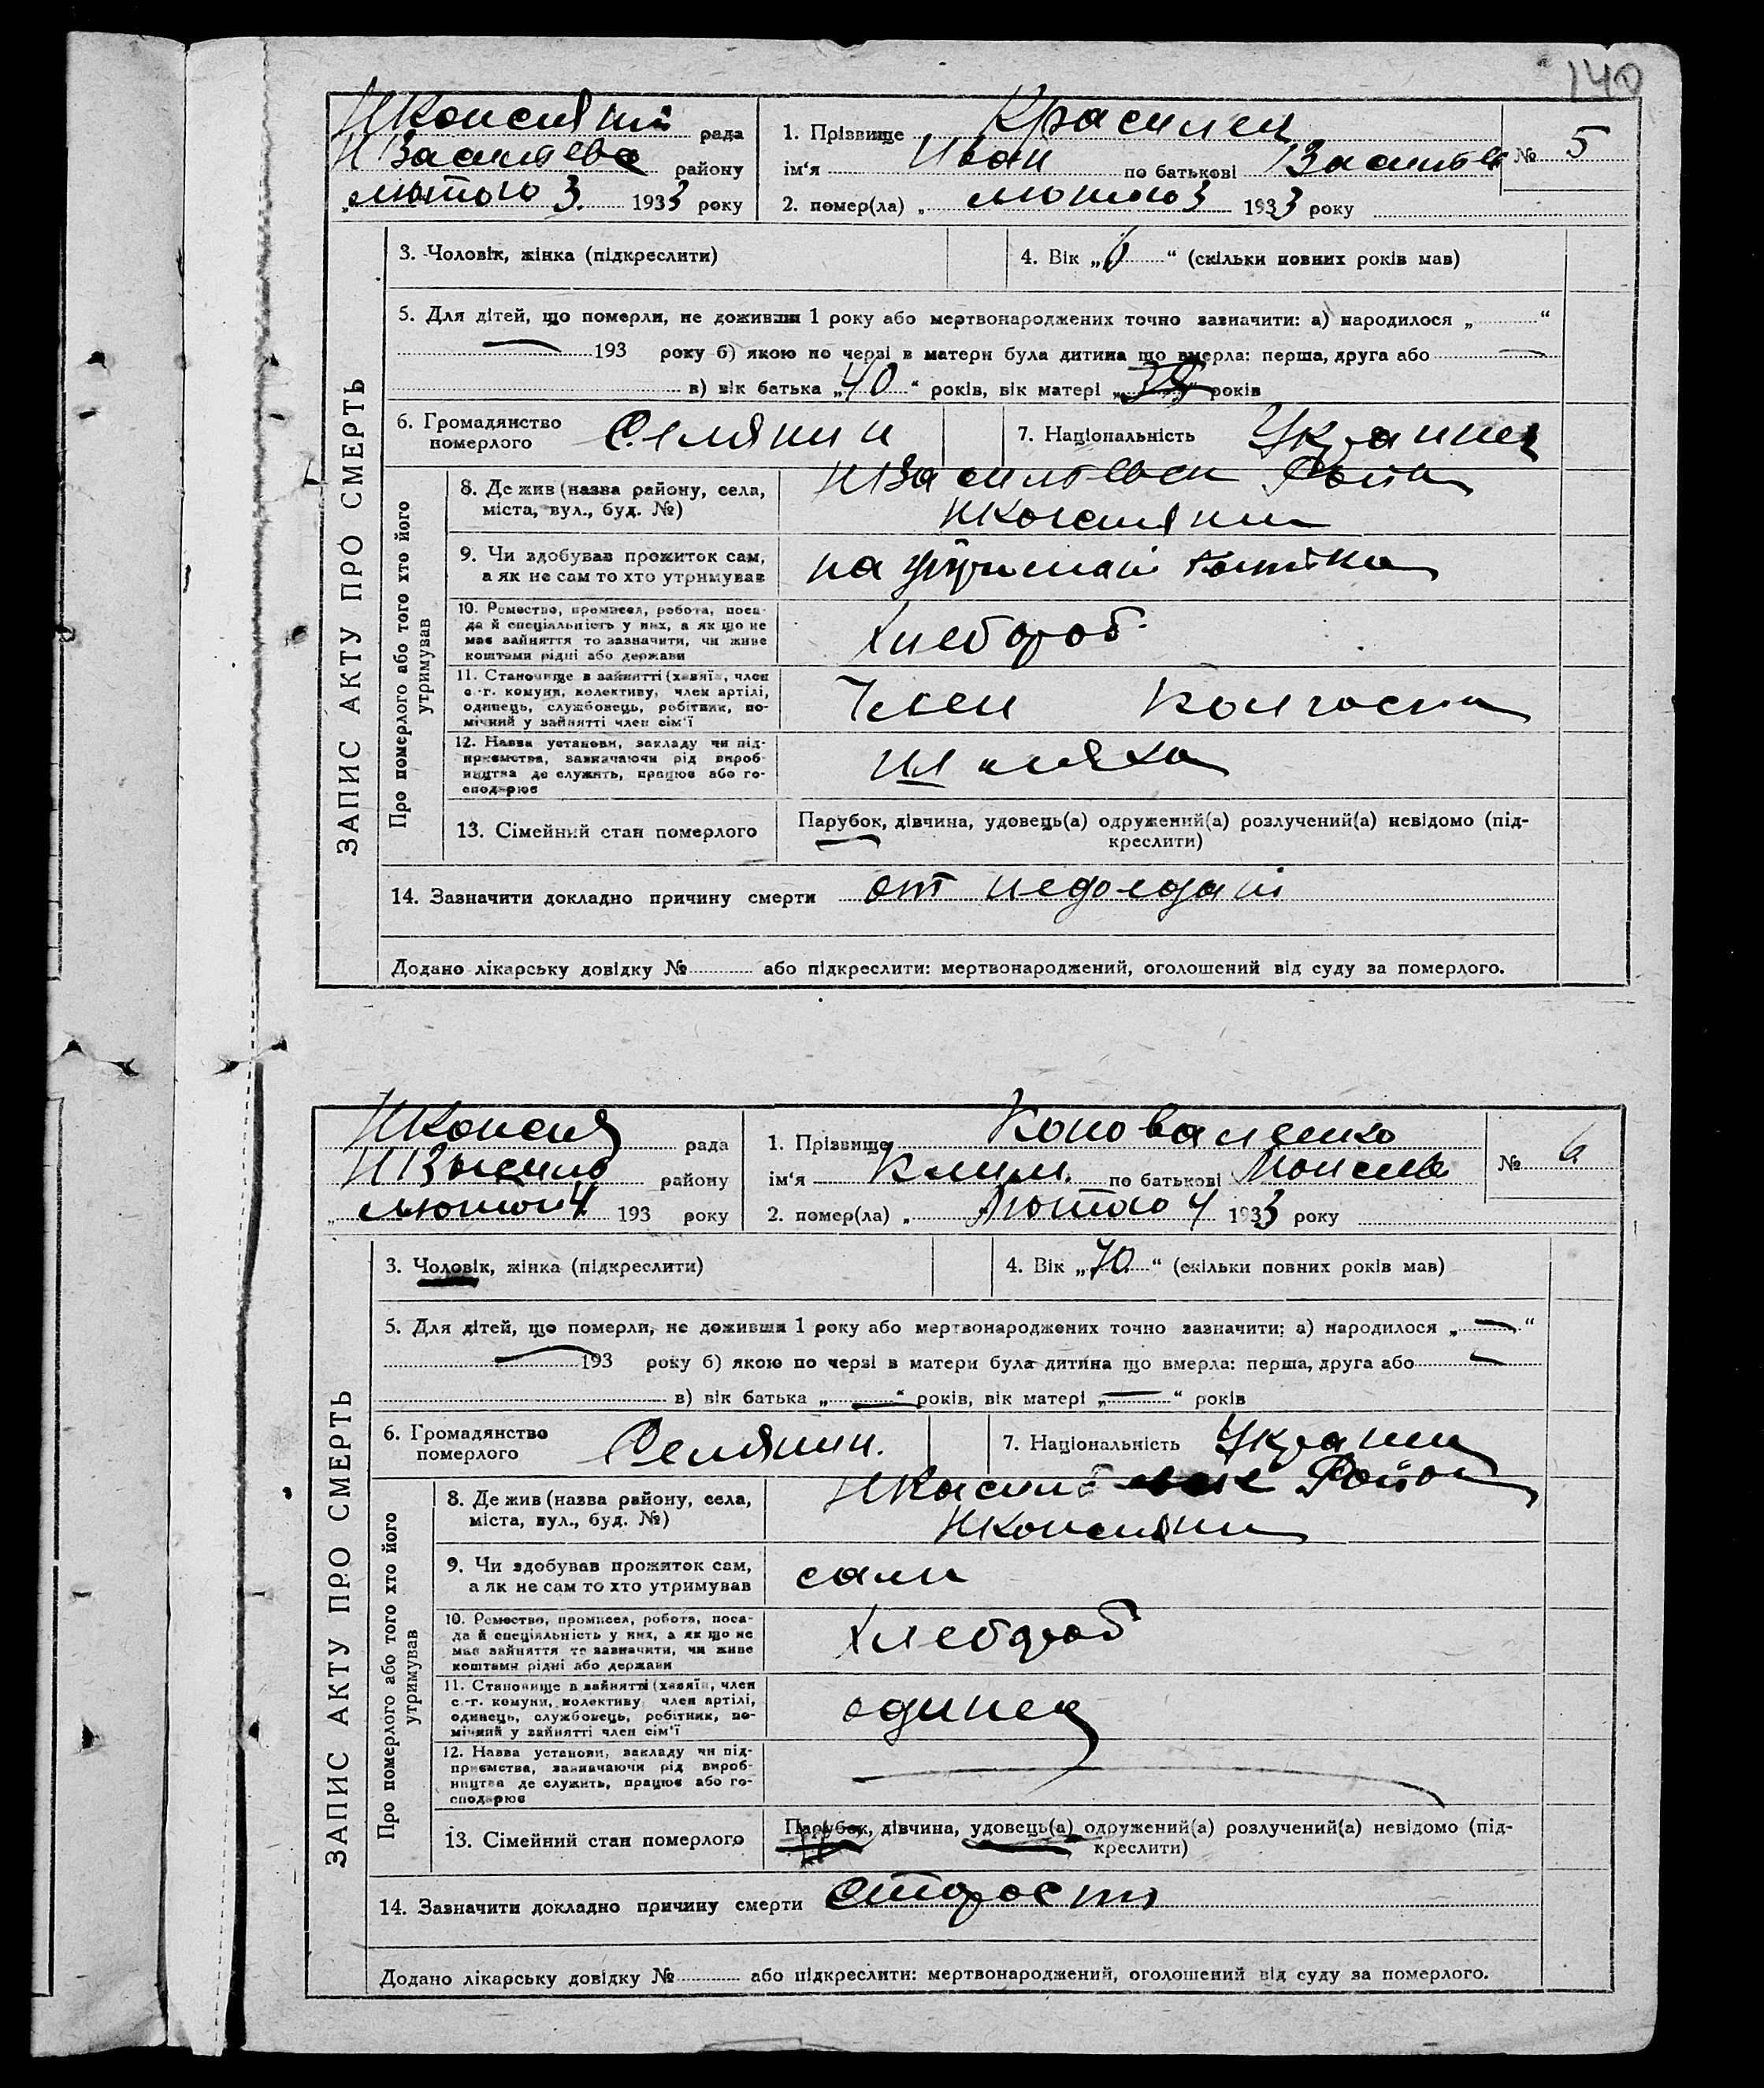 140
рада
района
лютого 3. 1933 року
1. Прізвище Красилец
ім'я Иван по батькові
№ 5
2. помер(ла) „ лютого 3 1933 року
ЗАПИС АКТУ ПРО СМЕРТЬ
3. Чоловік, жінка (підкреслити)
4. Вік „ “ (скільки повних років мав)
5. Для дітей, що померли, не доживши 1 року або мертвонароджених точно зазначити: а) народилося „ “
193 року б) якою по черзі в матери була дитина що вмерла: перша, друга або
в) вік батька „40“ років, вік матері „ “ років
6. Громадянство
померлого
Селянин
7. Національність Украинец
Про померлого або того хто його
утримував
8. Де жив (назва району, села,
міста, вул., буд. №)
9. Чи здобував прожиток сам,
а як не сам то хто утримував
на
10. Ремество, промисел, робота, поса-
да й спеціяльність у них, а як що не
має зайняття то зазначити, чи живе
коштами рідні або держави
Хлебороб
11. Становище в зайнятті (хазяїн, член
с.-г. комуни, колективу, член артілі,
одинець, службовець, робітник, по-
мічний у зайнятті член сім'ї
Член Колгоспа
12. Назва установи, закладу чи під-
приємства, зазначаючи рід вироб-
ництва де служить, працює або го-
сподарює
13. Сімейний стан померлого
Парубок, дівчина, удовець(а) одружений(а) розлучений(а) невідомо (під-
креслити)
14. Зазначити докладно причину смерти от недоедані
Додано лікарську довідку № або підкреслити: мертвонароджений, оголошений від суду за померлого.
рада
району
193 року
1. Прізвище Коноваленко
ім'я Клим. по батькові Моисеев
№ 6
2. помер(ла) „ Лютого 4 1933 року
ЗАПИС АКТУ ПРО СМЕРТЬ
3. Чоловік, жінка (підкреслити)
4. Вік „70“ (скільки повних років мав)
5. Для дітей, що померли, не доживши 1 року або мертвонароджених точно зазначити: а) народилося „—“
193 року б) якою по черзі в матери була дитина що вмерла: перша, друга або —
в) вік батька „—“ років, вік матері „—“ років
6. Громадянство
померлого
Селянин.
7. Національність
Про померлого або того хто його
утримував
8. Де жив (назва району, села,
міста, вул., буд. №)
9. Чи здобував прожиток сам,
а як не сам то хто утримував
сам
10. Ремество, промисел, робота, поса-
да й спеціяльність у них, а як що не
має зайняття то зазначити, чи живе
коштами рідні або держави
Хлебороб
11. Становище в зайнятті (хазяїн, член
с.-г. комуни, колективу, член артілі,
одинець, службовець, робітник, по-
мічний у зайнятті член сім'ї
одинец
12. Назва установи, закладу чи під-
приємства, зазначаючи рід вироб-
ництва де служить, працює або го-
сподарює
13. Сімейний стан померлого
Парубок, дівчина, удовець(а) одружений(а) розлучений(а) невідомо (під-
креслити)
14. Зазначити докладно причину смерти
Додано лікарську довідку № або підкреслити: мертвонароджений, оголошений від суду за померлого.